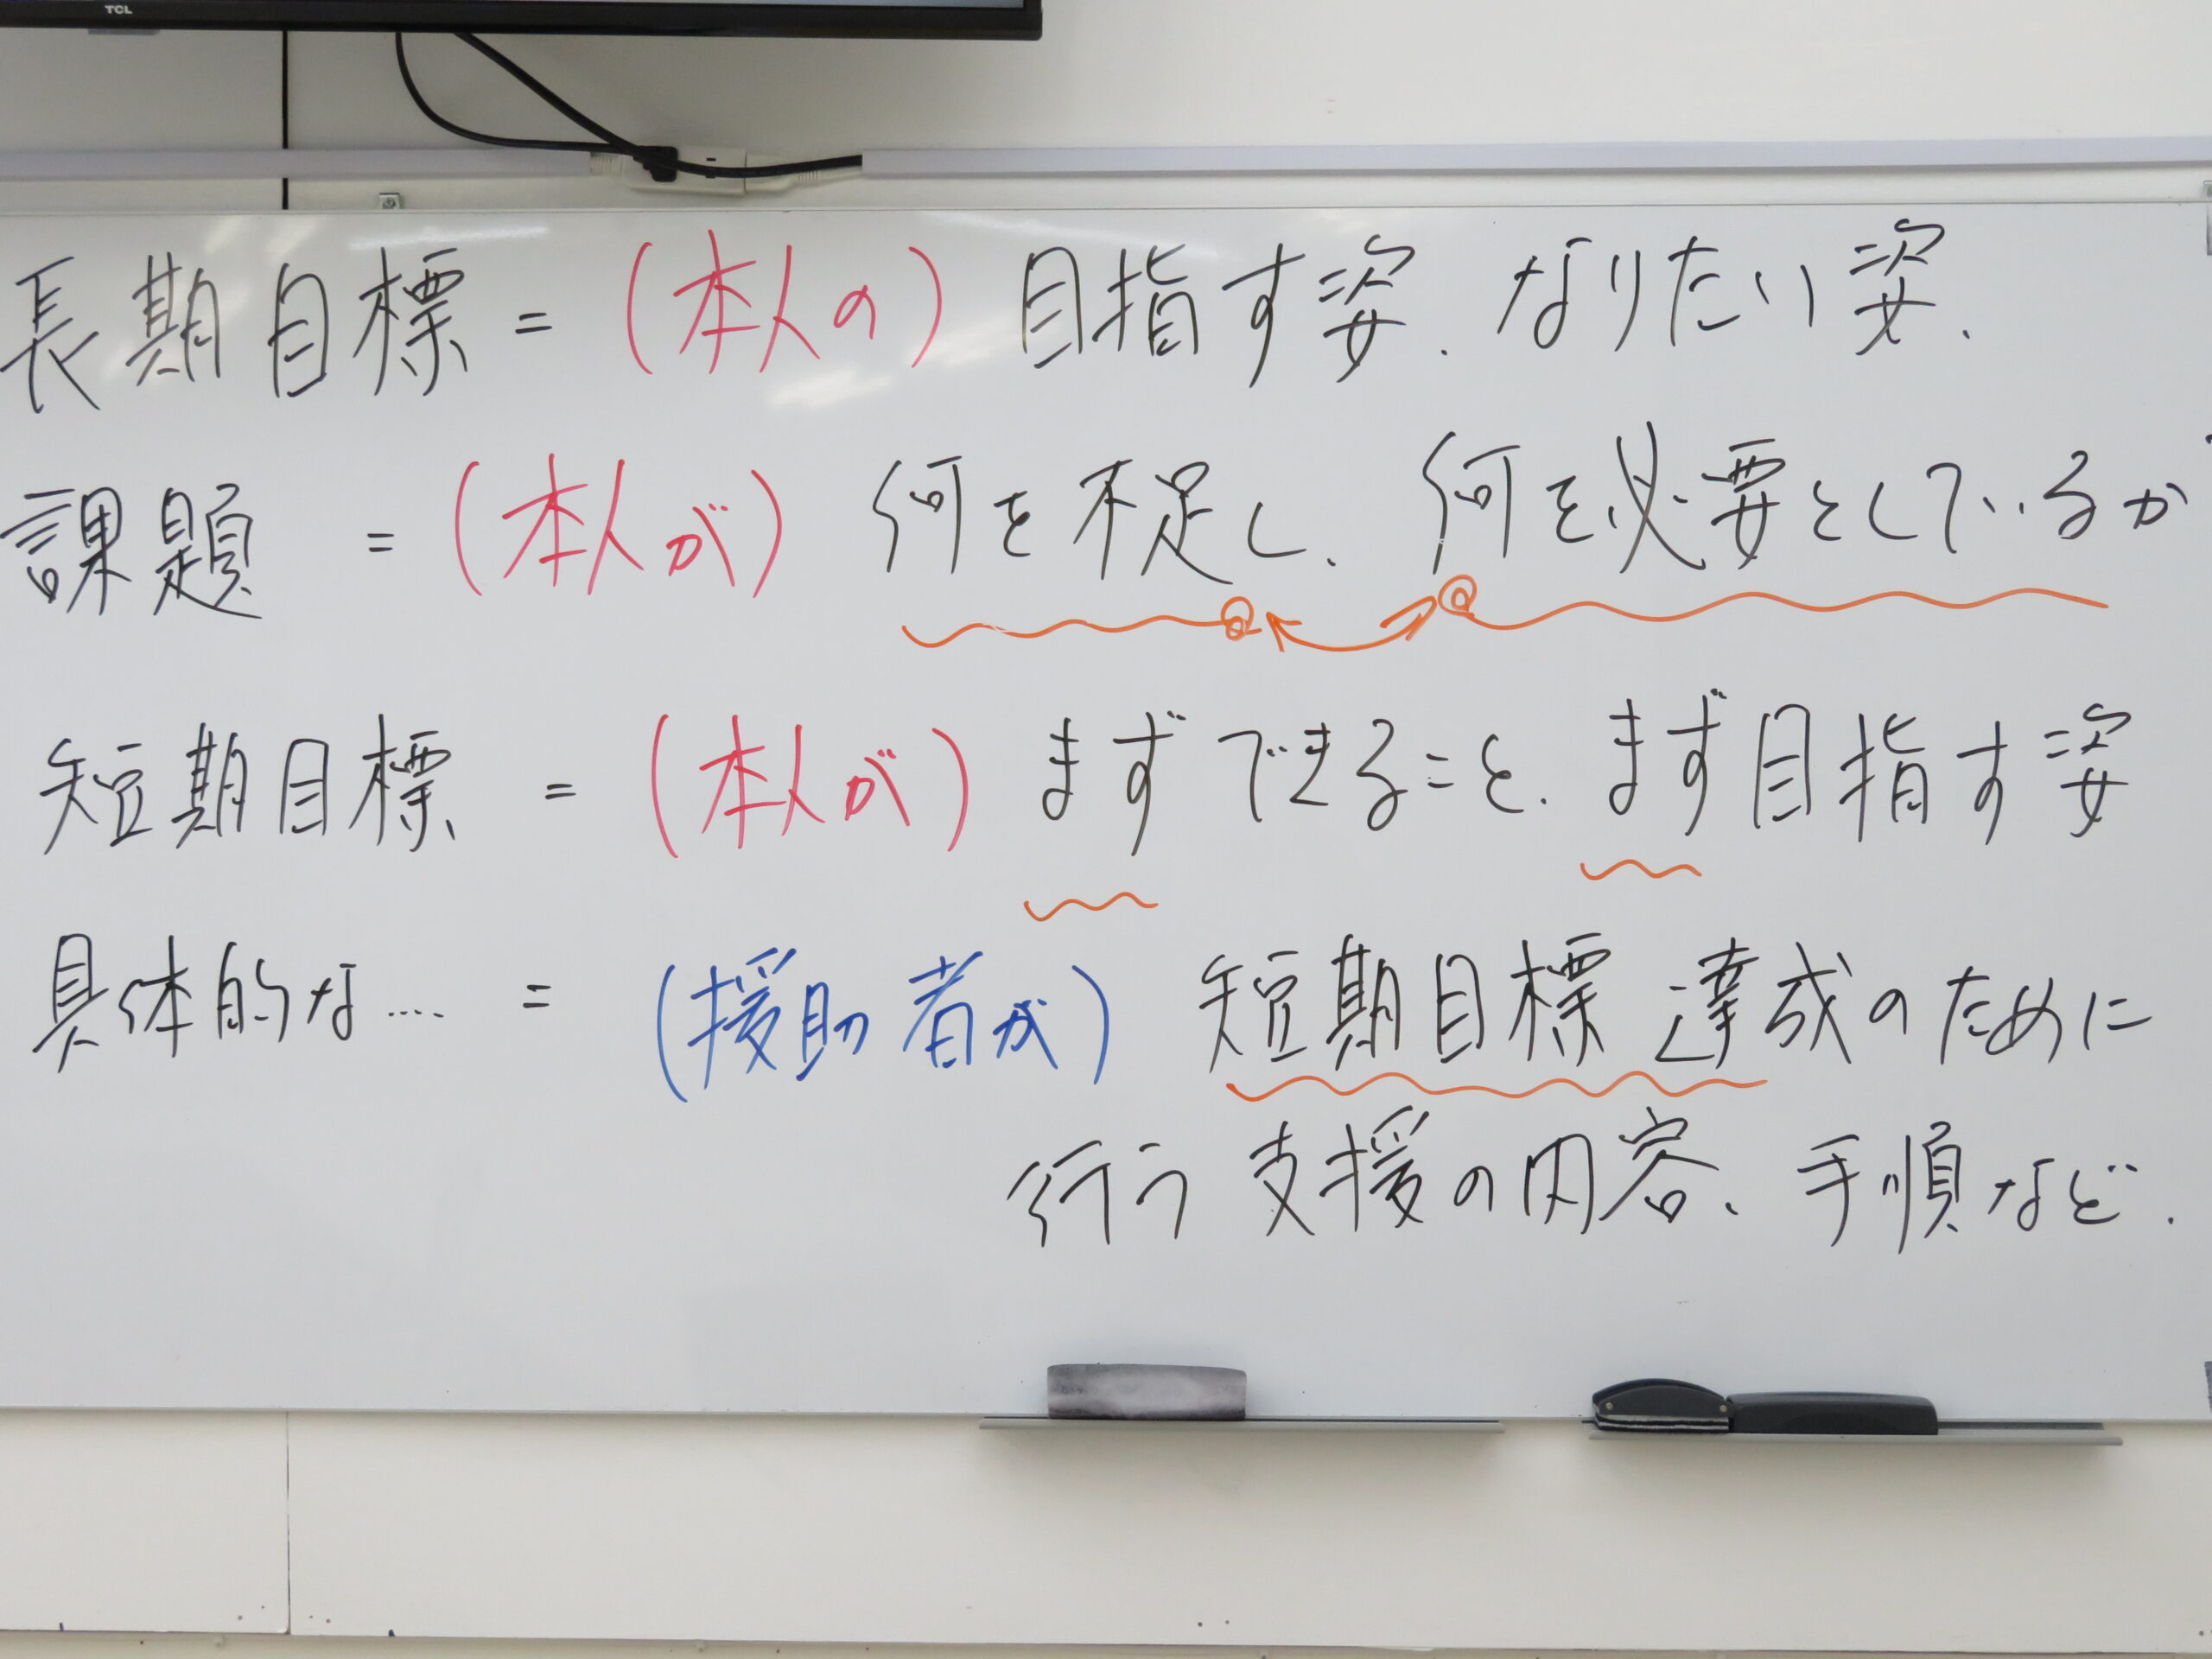 TCL
長期目標 = (本人の) 目指す姿. なりたい姿.
課題 = (本人が) 何を不足し、何を必要としているか
短期目標 = (本人が) まずできること. まず目指す姿
具体的な.... = (援助者が) 短期目標達成のために
行う支援の内容、手順など.